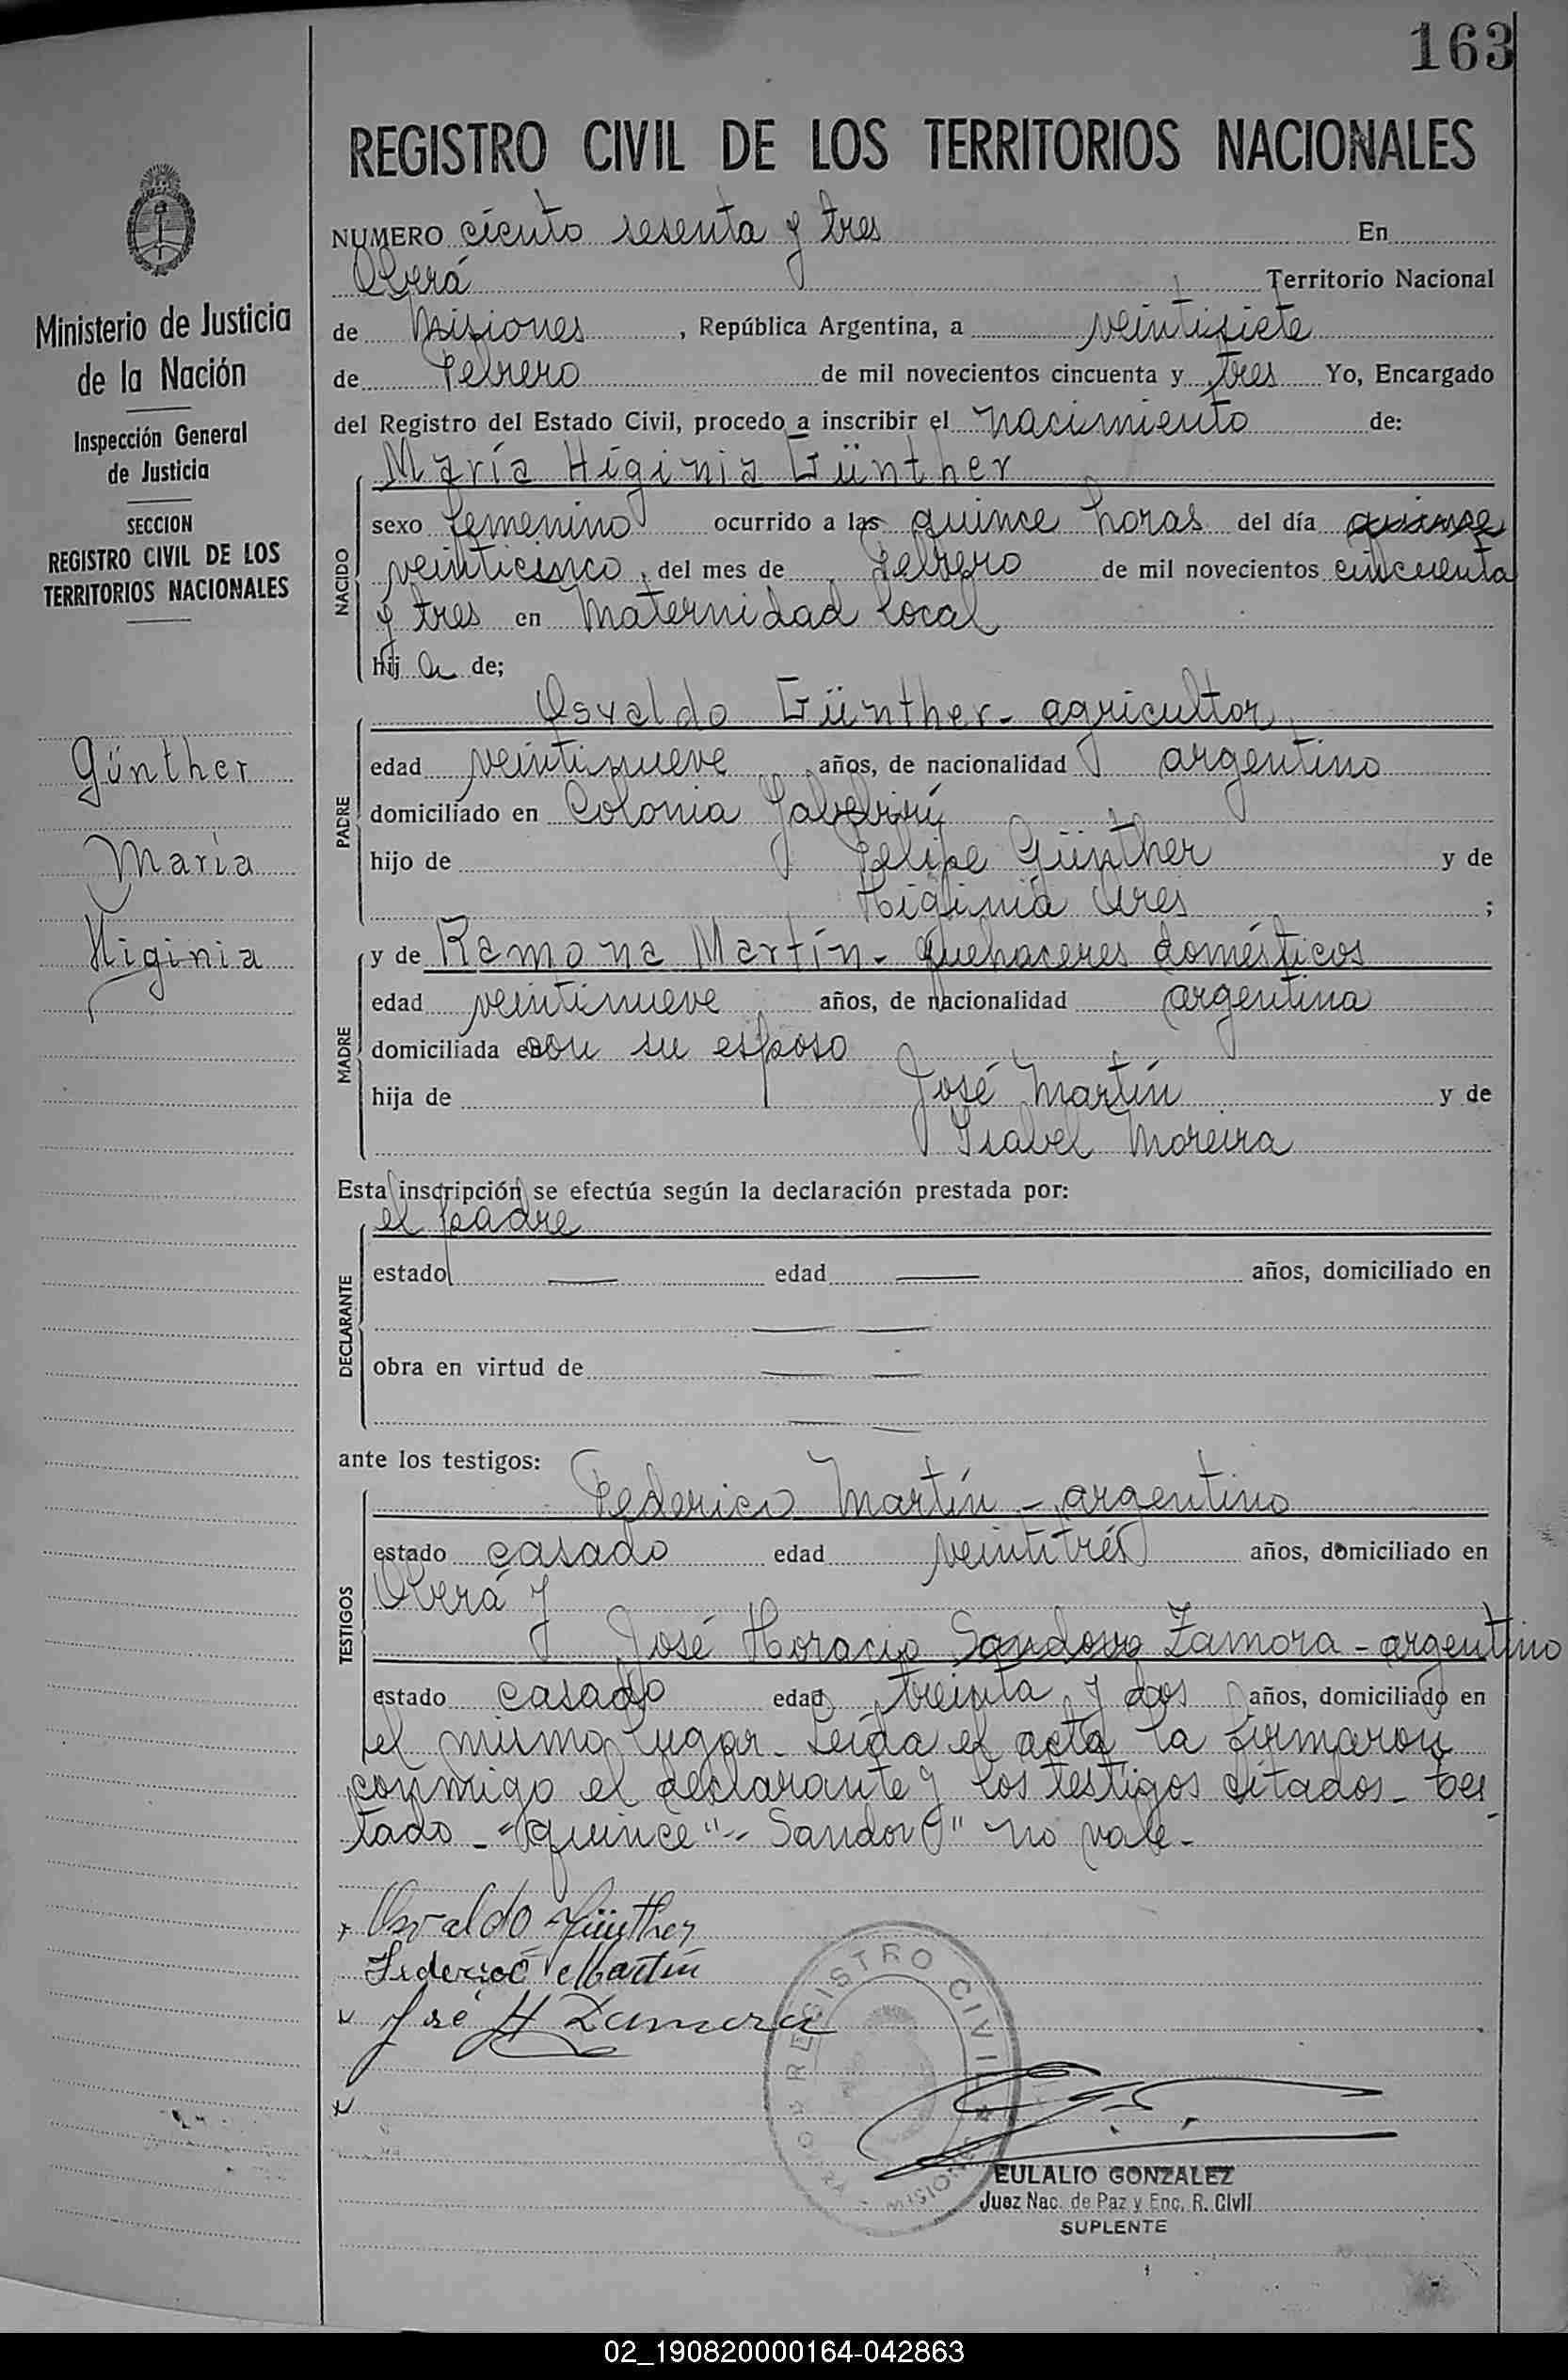 163
REGISTRO CIVIL DE LOS TERRITORIOS NACIONALES
Ministerio de Justicia
de la Nación
Inspección General
de Justicia
SECCION
REGISTRO CIVIL DE LOS
TERRITORIOS NACIONALES
Günther
María
Higinia
NUMERO ciento sesenta y tres En
Oberá Territorio Nacional
de Misiones, República Argentina, a veintisiete
de Febrero de mil novecientos cincuenta y tres Yo, Encargado
del Registro del Estado Civil, procedo a inscribir el nacimiento de:
NACIDO
María Higinia Günther
sexo femenino ocurrido a las quince horas del día quince
veinticinco, del mes de Febrero de mil novecientos cincuenta
y tres en Maternidad local
hija de;
PADRE
Osvaldo Günther - agricultor
edad veintinueve años, de nacionalidad argentino
domiciliado en Colonia Yabebirý
hijo de Felipe Günther y de
Higinia Ures ;
MADRE
y de Ramona Martín - quehaceres domésticos
edad veintinueve años, de nacionalidad argentina
domiciliada en con su esposo
hija de José Martín y de
Isabel Moreira
Esta inscripción se efectúa según la declaración prestada por:
DECLARANTE
el padre
estado — edad — años, domiciliado en
— —
obra en virtud de — —
— —
ante los testigos:
TESTIGOS
Federico Martín - argentino
estado casado edad veintitrés años, domiciliado en
Oberá y
José Horacio Sandova Zamora - argentino
estado casado edad treinta y dos años, domiciliado en
el mismo lugar. Leída el acta la firmaron
conmigo el declarante y los testigos citados - tes
tado - "quince" - Sandov" no vale -
x Osvaldo Günther
Federico Martín
x José H Zamora
x
REGISTRO CIVIL
OBERA - MISIONES
EULALIO GONZALEZ
Juez Nac. de Paz y Enc. R. Civil
SUPLENTE
02_190820000164-042863